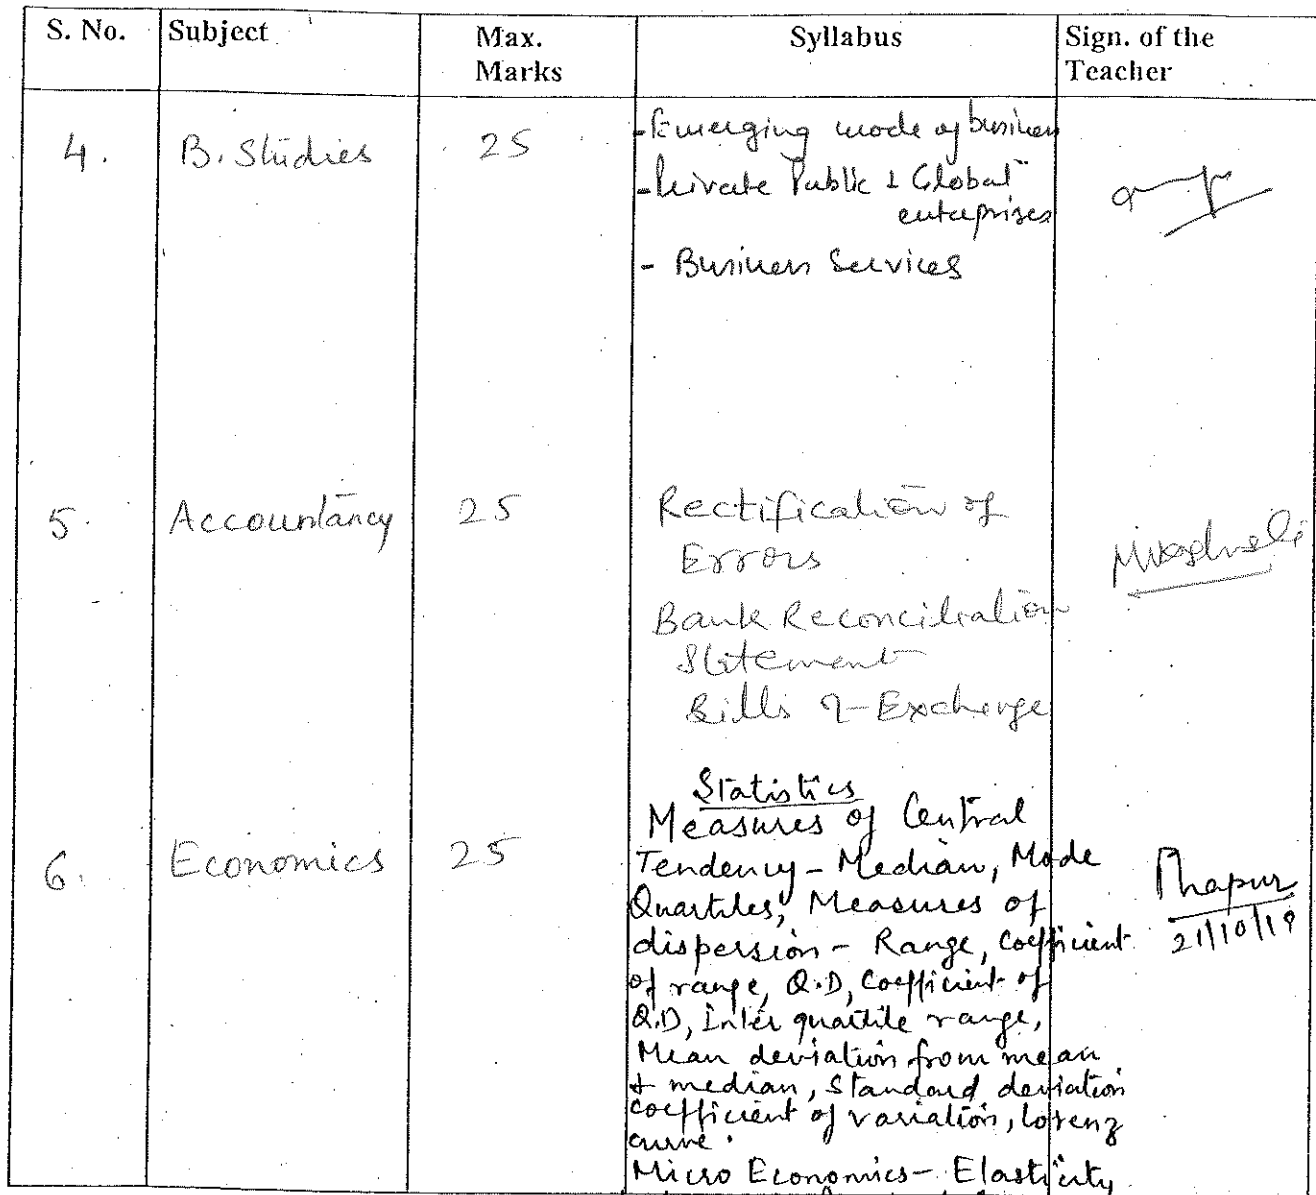 S. No. Subject Max. Marks Syllabus Sign. of the Teacher
4. B. Studies 25 - Emerging mode of business
- Private Public & Global
enterprises
- Business Services
5. Accountancy 25 Rectification of
Errors
Bank Reconciliation
Statement
Bills of Exchange
Statistics
6. Economics 25 Measures of Central
Tendency - Median, Mode
Quartiles, Measures of
dispersion - Range, Coefficient
of range, Q.D, Coefficient of
Q.D, Inter quartile range,
Mean deviation from mean
& median, Standard deviation
coefficient of variation, lorenz
curve.
Micro Economics - Elasticity
21/10/19